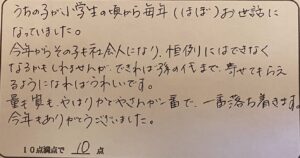 うちの子が小学生の頃から毎年(ほぼ)お世話に
なっていました。
今年からその子も社会人になり、恒例にはできなく
なるかもしれませんが、できれば孫の代まで、寄せてもらえ
るようになればうれしいです。
量も質も、やはりかどやさんが一番で、一番落ち着きます。
今年もありがとうございました。
10点満点で 10 点